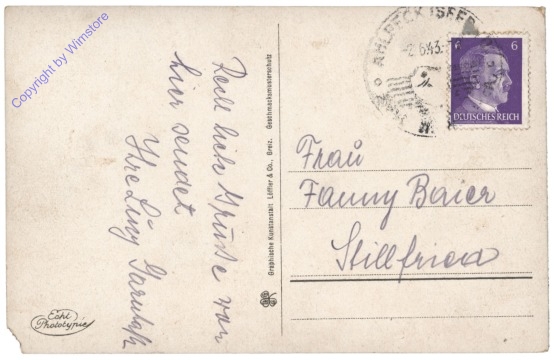 Copyright by Wimstore
Recht liebe Grüsse von
hier sendet
Ihre
Echt
Phototypie
Graphische Kunstanstalt Löffler & Co., Greiz. Geschmacksmusterschutz
AHLBECK (SEEB
2.6.43
6
6
DEUTSCHES REICH
Frau
Fanny Baier
Stillfried